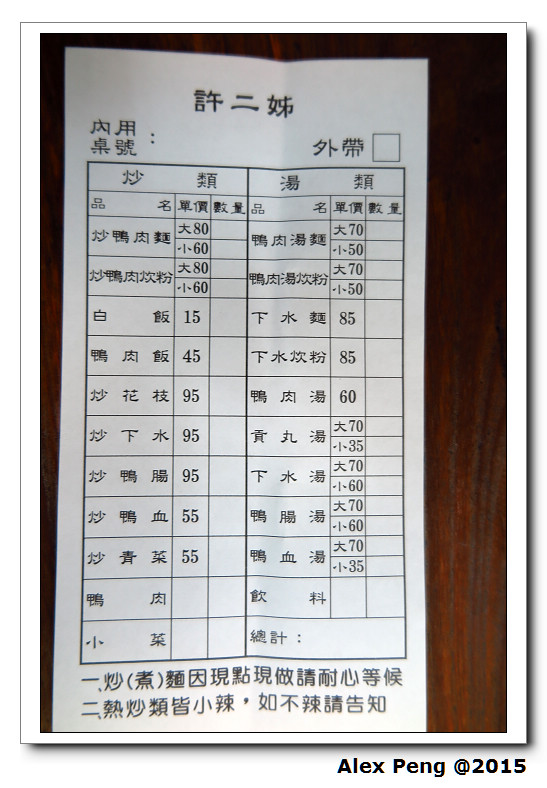 許二姊
內用
桌號：
外帶
炒類 湯類
品名 單價 數量 品名 單價 數量
炒鴨肉麵 大80 小60 鴨肉湯麵 大70 小50
炒鴨肉炊粉 大80 小60 鴨肉湯炊粉 大70 小50
白飯 15 下水麵 85
鴨肉飯 45 下水炊粉 85
炒花枝 95 鴨肉湯 60
炒下水 95 貢丸湯 大70 小35
炒鴨腸 95 下水湯 大70 小60
炒鴨血 55 鴨腸湯 大70 小60
炒青菜 55 鴨血湯 大70 小35
鴨肉 飲料
小菜 總計：
一、炒(煮)麵因現點現做請耐心等候
二、熱炒類皆小辣，如不辣請告知
Alex Peng @2015